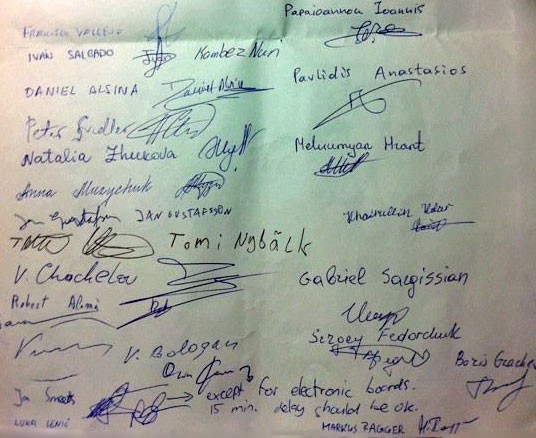 FRANCISCO VALLEJO
IVÁN SALGADO
Kambez Nuri
DANIEL ALSINA
Daniel Alsina
Peter Svidler
Natalia Zhukova
Anna Muzychuk
Jan Gustafsson JAN GUSTAFSSON
Tomi Nybäck
V. Chochelov
Robert Alomá
V. Bologan
Jan Smeets
LUKA LENIČ
Papaioannou Ioannis
Pavlidis Anastasios
Melkumyan Hrant
Khairullin Ildar
Gabriel Sargissian
Sergey Fedorchuk
Boris Grachev
except for electronic boards.
15 min. delay should be ok.
MARKUS RAGGER